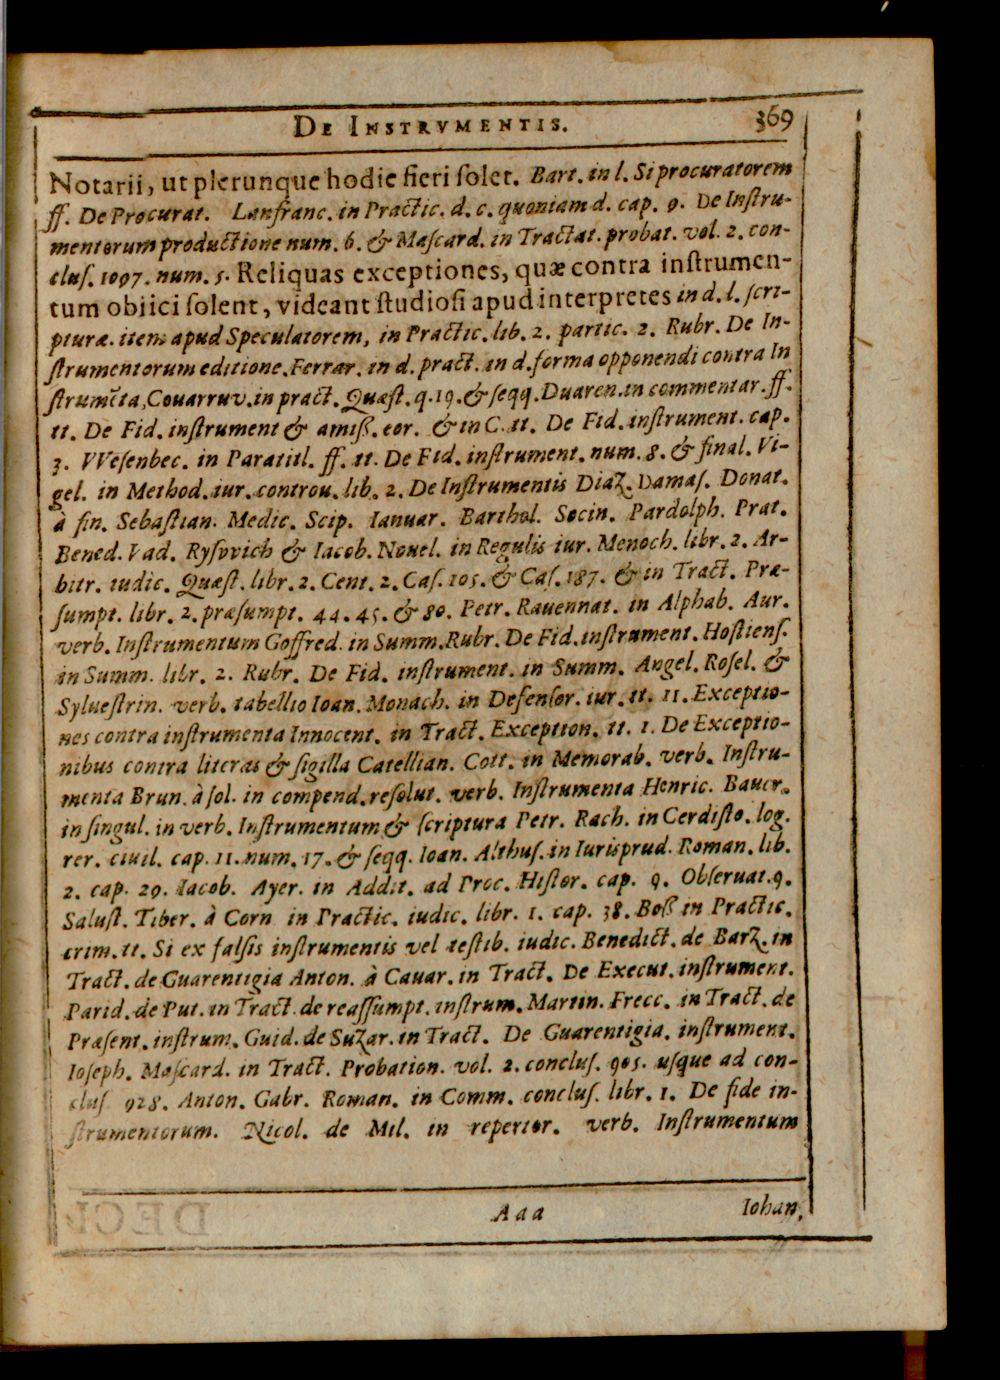 DE INSTRVMENTIS. 369
Notarii, ut plerunque hodie fieri ſolet. Bart. in l. Si procuratorem
ff. De Procurat. Lanfranc. in Practic. d. c. quoniam d. cap. 9. De Inſtru-
mentorum productione num. 6. & Maſcard. in Tractat. probat. vol. 2. con-
cluſ. 1097. num. 5. Reliquas exceptiones, quæ contra inſtrumen-
tum obiici ſolent, videant ſtudioſi apud interpretes in d. l. ſcri-
pturæ. item apud Speculatorem, in Practic. lib. 2. partic. 2. Rubr. De In-
ſtrumentorum editione. Ferrar. in d. pract. in d. forma opponendi contra In
ſtrumēta, Couarruv. in pract. Quæſt. q. 19. & ſeqq. Duaren. in commentar. ff.
tt. De Fid. inſtrument & amiß. eor. & in C. tt. De Fid. inſtrument. cap.
3. VVeſenbec. in Paratitl. ff. tt. De Fid. inſtrument. num. 8. & final. Vi-
gel. in Method. iur. controu. lib. 2. De Inſtrumentis Diaz. Damaſ. Donat.
à fin. Sebaſtian. Medic. Scip. Ianuar. Barthol. Socin. Pardolph. Prat.
Bened. Vad. Ryſvvich & Iacob. Nouel. in Regulis iur. Menoch. libr. 2. Ar-
bitr. iudic. Quæſt. libr. 2. Cent. 2. Caſ. 105. & Caſ. 187. & in Tract. Præ-
ſumpt. libr. 2. præſumpt. 44. 45. & 80. Petr. Rauennat. in Alphab. Aur.
verb. Inſtrumentum Goffred. in Summ. Rubr. De Fid. inſtrument. Hoſtienſ.
in Summ. libr. 2. Rubr. De Fid. inſtrument. in Summ. Angel. Roſel. &
Sylueſtrin. verb. tabellio Ioan. Monach. in Defenſor. iur. tt. 11. Exceptio-
nes contra inſtrumenta Innocent. in Tract. Exception. tt. 1. De Exceptio-
nibus contra literas & ſigilla Catellian. Cott. in Memorab. verb. Inſtru-
menta Brun. à ſol. in compend. reſolut. verb. Inſtrumenta Henric. Bauer.
in ſingul. in verb. Inſtrumentum & ſcriptura Petr. Rach. in Cerdiſto. log.
rer. ciuil. cap. 11. num. 17. & ſeqq. Ioan. Althuſ. in Iurisprud. Roman. lib.
2. cap. 29. Iacob. Ayer. in Addit. ad Proc. Hiſtor. cap. 9. Obſeruat. 9.
Saluſt. Tiber. à Corn in Practic. iudic. libr. 1. cap. 38. Boß in Practic.
crim. tt. Si ex falſis inſtrumentis vel teſtib. iudic. Benedict. de Barz. in
Tract. de Guarentigia Anton. à Cauar. in Tract. De Execut. inſtrument.
Parid. de Put. in Tract. de reaſſumpt. inſtrum. Martin. Frecc. in Tract. de
Præſent. inſtrum. Guid. de Suzar. in Tract. De Guarentigia. inſtrument.
Ioſeph. Maſcard. in Tract. Probation. vol. 2. concluſ. 905. uſque ad con-
cluſ. 928. Anton. Gabr. Roman. in Comm. concluſ. libr. 1. De fide in-
ſtrumentorum. Nicol. de Mil. in repertor. verb. Inſtrumentum
Aaa Iohan.